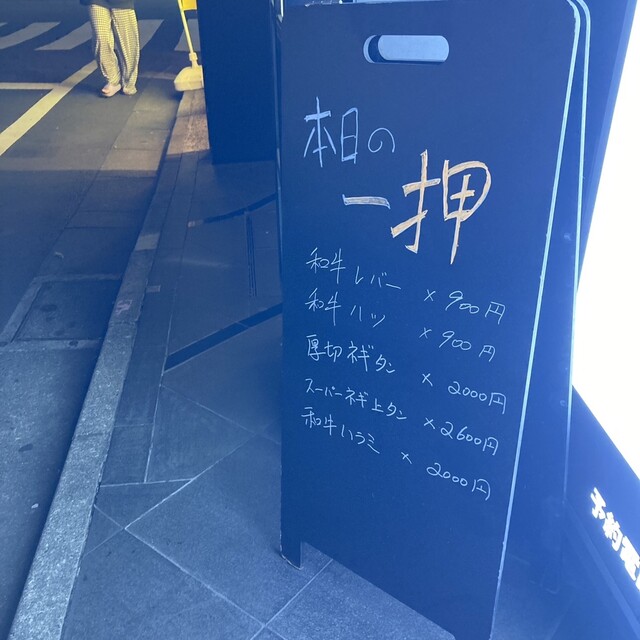 本日の
一押
和牛レバー × 900円
和牛ハツ × 900円
厚切ネギタン × 2000円
スーパーネギ上タン × 2600円
和牛ハラミ × 2000円
予約電